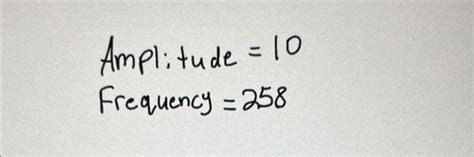 Amplitude = 10
Frequency = 258